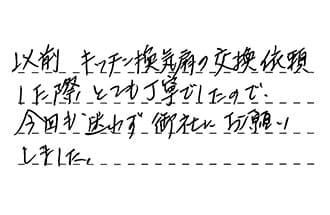 以前 キッチン換気扇の交換依頼
した際、とても丁寧でしたので、
今回も迷わず御社にお願い
しました。